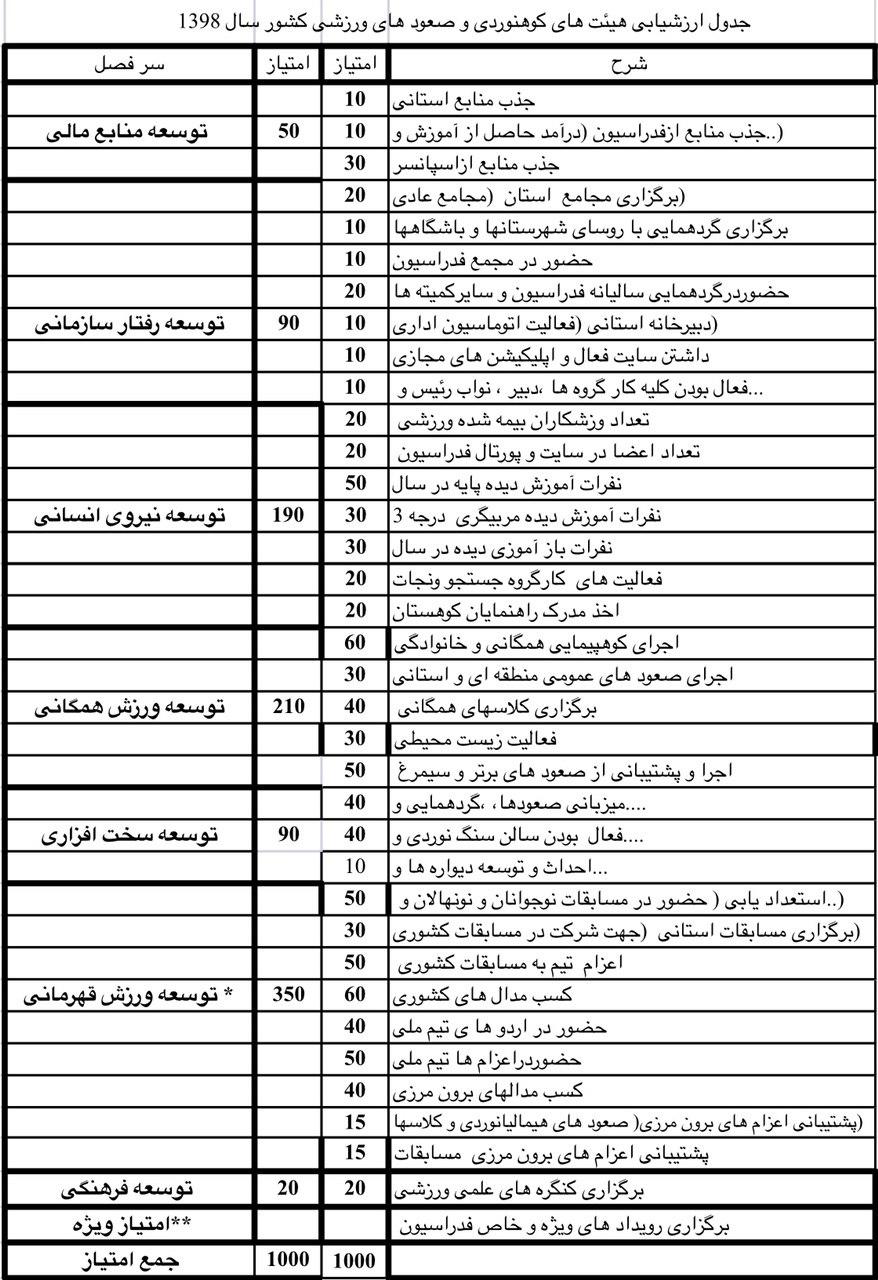 جدول ارزشیابی هیئت های کوهنوردی و صعود های ورزشی کشور سال 1398
شرح امتیاز امتیاز سر فصل
جذب منابع استانی 10
(..جذب منابع ازفدراسیون (درآمد حاصل از آموزش و 10 50 توسعه منابع مالی
جذب منابع ازاسپانسر 30
(برگزاری مجامع استان (مجامع عادی 20
برگزاری گردهمایی با روسای شهرستانها و باشگاهها 10
حضور در مجمع فدراسیون 10
حضوردرگردهمایی سالیانه فدراسیون و سایرکمیته ها 20
(دبیرخانه استانی (فعالیت اتوماسیون اداری 10 90 توسعه رفتار سازمانی
داشتن سایت فعال و اپلیکیشن های مجازی 10
...فعال بودن کلیه کار گروه ها ،دبیر ، نواب رئیس و 10
تعداد وزشکاران بیمه شده ورزشی 20
تعداد اعضا در سایت و پورتال فدراسیون 20
نفرات آموزش دیده پایه در سال 50
نفرات آموزش دیده مربیگری درجه 3 30 190 توسعه نیروی انسانی
نفرات باز آموزی دیده در سال 30
فعالیت های کارگروه جستجو ونجات 20
اخذ مدرک راهنمایان کوهستان 20
اجرای کوهپیمایی همگانی و خانوادگی 60
اجرای صعود های عمومی منطقه ای و استانی 30
برگزاری کلاسهای همگانی 40 210 توسعه ورزش همگانی
فعالیت زیست محیطی 30
اجرا و پشتیبانی از صعود های برتر و سیمرغ 50
....میزبانی صعودها، ،گردهمایی و 40
....فعال بودن سالن سنگ نوردی و 40 90 توسعه سخت افزاری
...احداث و توسعه دیواره ها و 10
(..استعداد یابی ( حضور در مسابقات نوجوانان و نونهالان و 50
(برگزاری مسابقات استانی (جهت شرکت در مسابقات کشوری 30
اعزام تیم به مسابقات کشوری 50
کسب مدال های کشوری 60 350 * توسعه ورزش قهرمانی
حضور در اردو ها ی تیم ملی 40
حضوردراعزام ها تیم ملی 50
کسب مدالهای برون مرزی 40
(پشتیبانی اعزام های برون مرزی( صعود های هیمالیانوردی و کلاسها 15
پشتیبانی اعزام های برون مرزی مسابقات 15
برگزاری کنگره های علمی ورزشی 20 20 توسعه فرهنگی
برگزاری رویداد های ویژه و خاص فدراسیون **امتیاز ویژه
1000 1000 جمع امتیاز